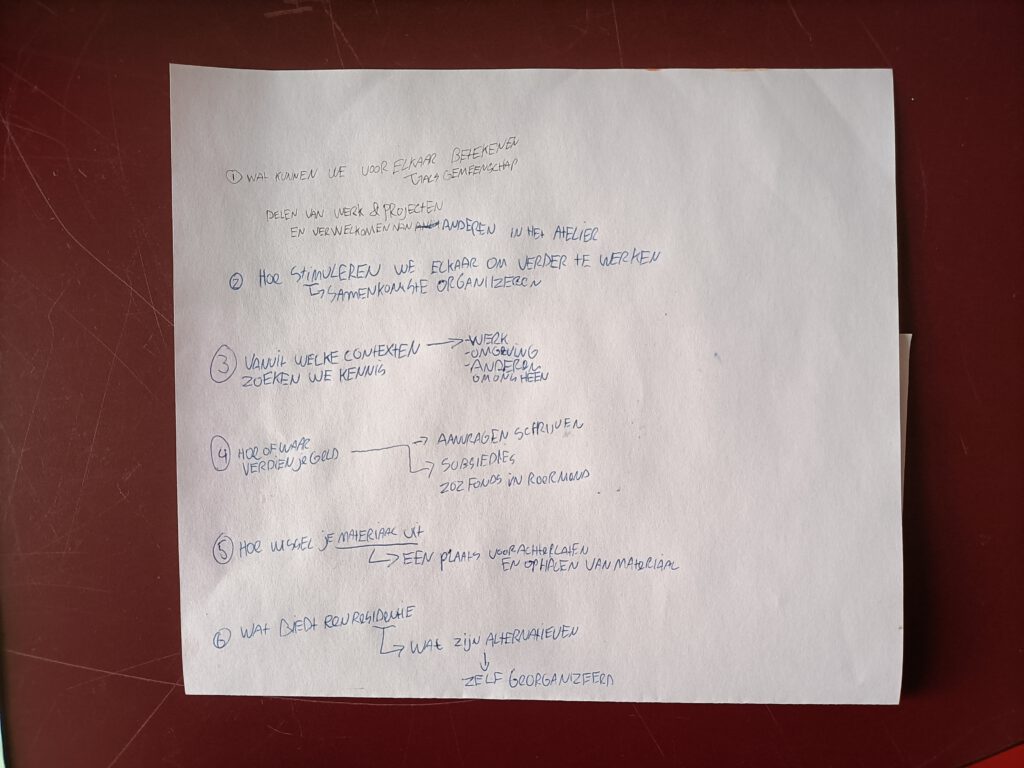 ① WAT KUNNEN WE VOOR ELKAAR BETEKENEN
ALS GEMEENSCHAP
DELEN VAN WERK & PROJECTEN
EN VERWELKOMEN VAN ANDEREN IN HET ATELIER
② HOE STIMULEREN WE ELKAAR OM VERDER TE WERKEN
SAMENKOMSTE ORGANIZEREN
③ VANUIT WELKE CONTEXTEN → -WERK
ZOEKEN WE KENNIS
-OMGEVING
-ANDEREN
OM ONS HEEN
④ HOE OF WAAR
VERDIEN JE GELD
→ AANVRAGEN SCHRIJVEN
→ SUBSIEDIES
ZOZ FONDS IN ROERMOND
⑤ HOE WISSEL JE MATERIAAL UIT
→ EEN PLAATS VOOR ACHTERLATEN
EN OPHALEN VAN MATERIAAL
⑥ WAT BIEDT EEN RESIDENTIE
→ WAT ZIJN ALTERNATIEVEN
↓
ZELF GEORGANIZEERD